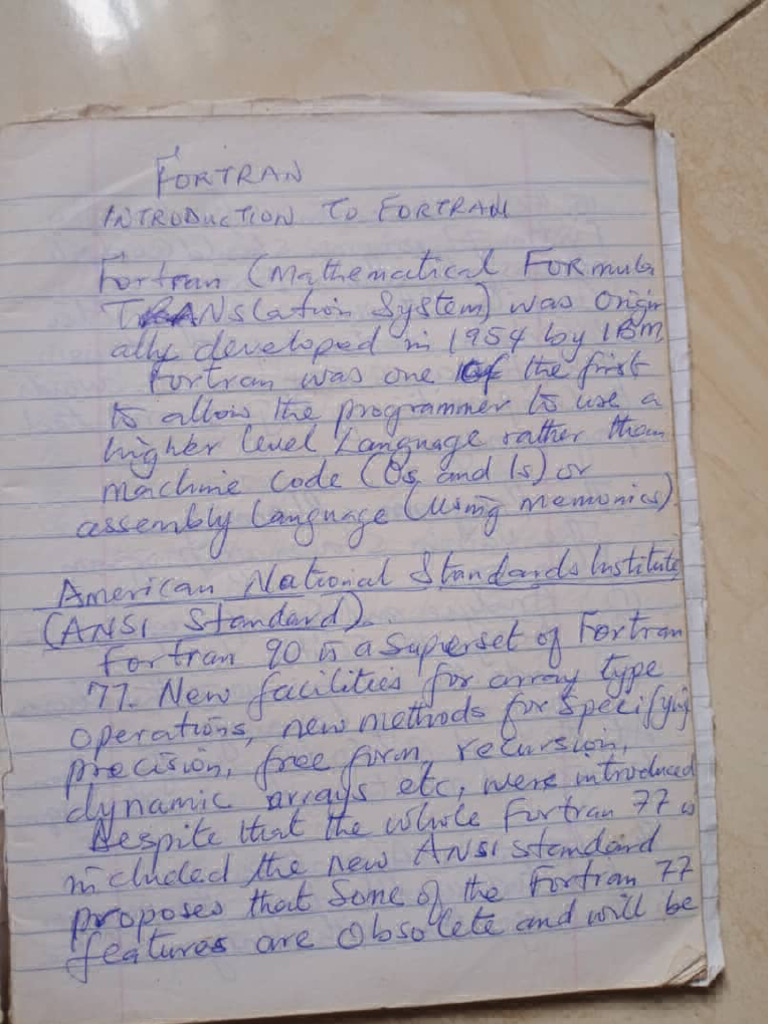 FORTRAN
INTRODUCTION TO FORTRAN
Fortran (Mathematical FORmula
TRANSlation System) was origin
ally developed in 1954 by IBM
Fortran was one of the first
to allow the programmer to use a
higher level Language rather than
machine Code (0s and 1s) or
assembly Language (Using memonics)
American National Standards Institute
(ANSI Standard).
Fortran 90 is a Superset of Fortran
77. New facilities for array type
operations, new methods for Specifying
precision, free form, recursion,
dynamic arrays etc, were introduced
Despite that the whole Fortran 77 is
included the new ANSI standard
proposes that Some of the Fortran 77
features are Obsolete and will be